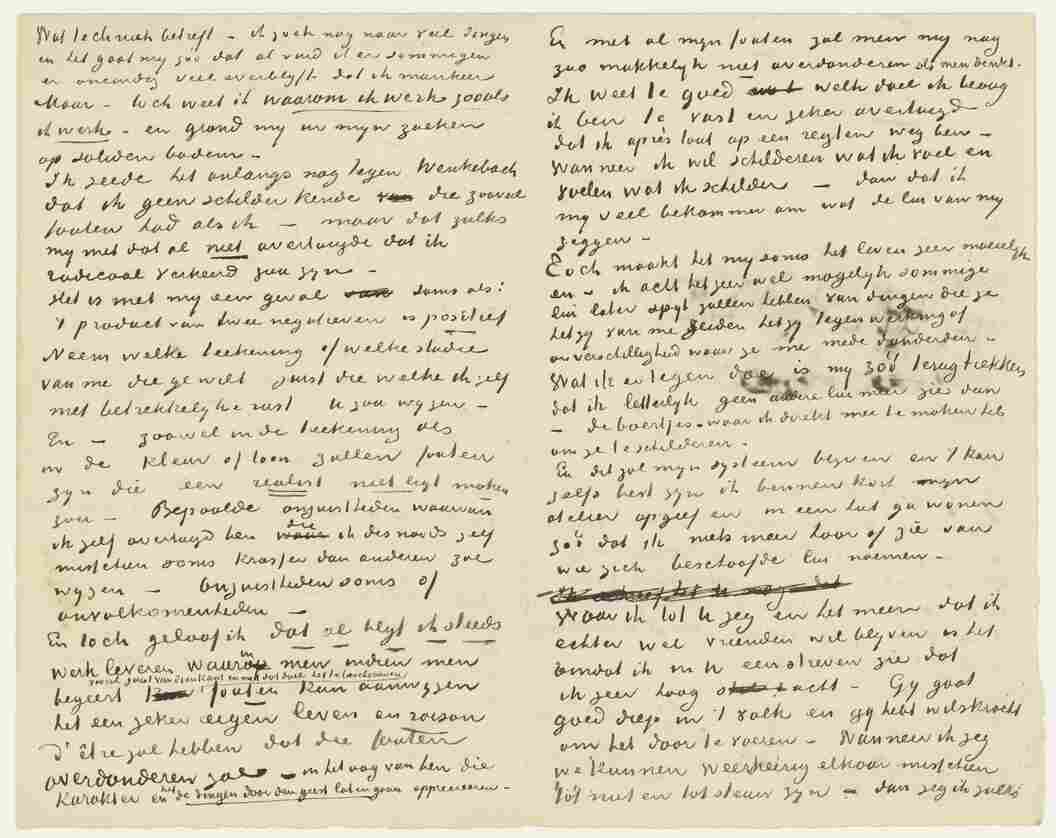 Wat techniek betreft – ik zoek nog naar veel dingen
en het gaat my zoo dat al vind ik er sommigen
er oneindig veel overblyft dat ik mankeer
Maar – toch weet ik waarom ik werk zooals
ik werk – en grond my in myn zoeken
op soliden bodem –
Ik zeide het onlangs nog tegen Wenkebach
dat ik geen schilder kende die zooveel
fouten had als ik – maar dat zulks
my met dat al niet overtuigde dat ik
radicaal verkeerd zou zyn –
Het is met my een geval soms als:
't product van twee negatieven is positief
Neem welke teekening of welke studie
van me die ge wilt juist die welke ik zelf
met betrekkelyke rust U zou wyzen –
En – zoowel in de teekening als
in de kleur of toon zullen fouten
zyn die een realist niet ligt maken
zou – Bepaalde onjuistheden waarvan
ik zelf overtuigd ben die ik des noods zelf
misschien soms krasser dan anderen zou
wyzen – Onjuistheden soms of
onvolkomenheden –
En toch geloof ik dat al blyf ik steeds
werk leveren waarin men indien men
vooral gaat van dien kant en met dat doel het te beschouwen
begeert fouten kan aanwyzen
het een zeker eigen leven en raison
d'être zal hebben dat die fouten
overdonderen zal – in het oog van hen die
karakter en het de dingen door den geest laten gaan apprecieeren –
En met al myn fouten zal men my nog
zoo makkelyk niet overdonderen als men denkt.
Ik weet te goed welk doel ik beoog
ik ben te vast en zeker overtuigd
dat ik après tout op een regten weg ben –
wanneer ik wil schilderen wat ik voel en
voelen wat ik schilder – dan dat ik
my veel bekommer om wat de lui van my
zeggen –
Toch maakt het my soms het leven zeer moeielyk
en – ik acht het zeer wel mogelyk sommige
lui later spyt zullen hebben van dingen die ze
hetzy van me zeiden hetzy tegenwerking of
onverschilligheid waar ze me mede donderden –
Wat ik er tegen doe is my zóó terugtrekken
dat ik letterlyk geen andere lui meer zie dan
– de boertjes – waar ik direkt mee te maken heb
om ze te schilderen –
En dit zal myn systeem blyven en 't kan
zelfs best zyn ik binnen kort myn
atelier opgeef en in een hut ga wonen
zóó dat ik niets meer hoor of zie van
wie zich beschaafde lui noemen –
Waar ik tot U zeg en het meen dat ik
echter wel vrienden wil blyven is het
omdat ik in U een streven zie dat
ik zeer hoog acht – Gy gaat
goed diep in 't volk en gy hebt wilskracht
om het door te voeren – Wanneer ik zeg
we kunnen weerkeerig elkaar misschien
tot nut en tot steun zyn – dan zeg ik zulks